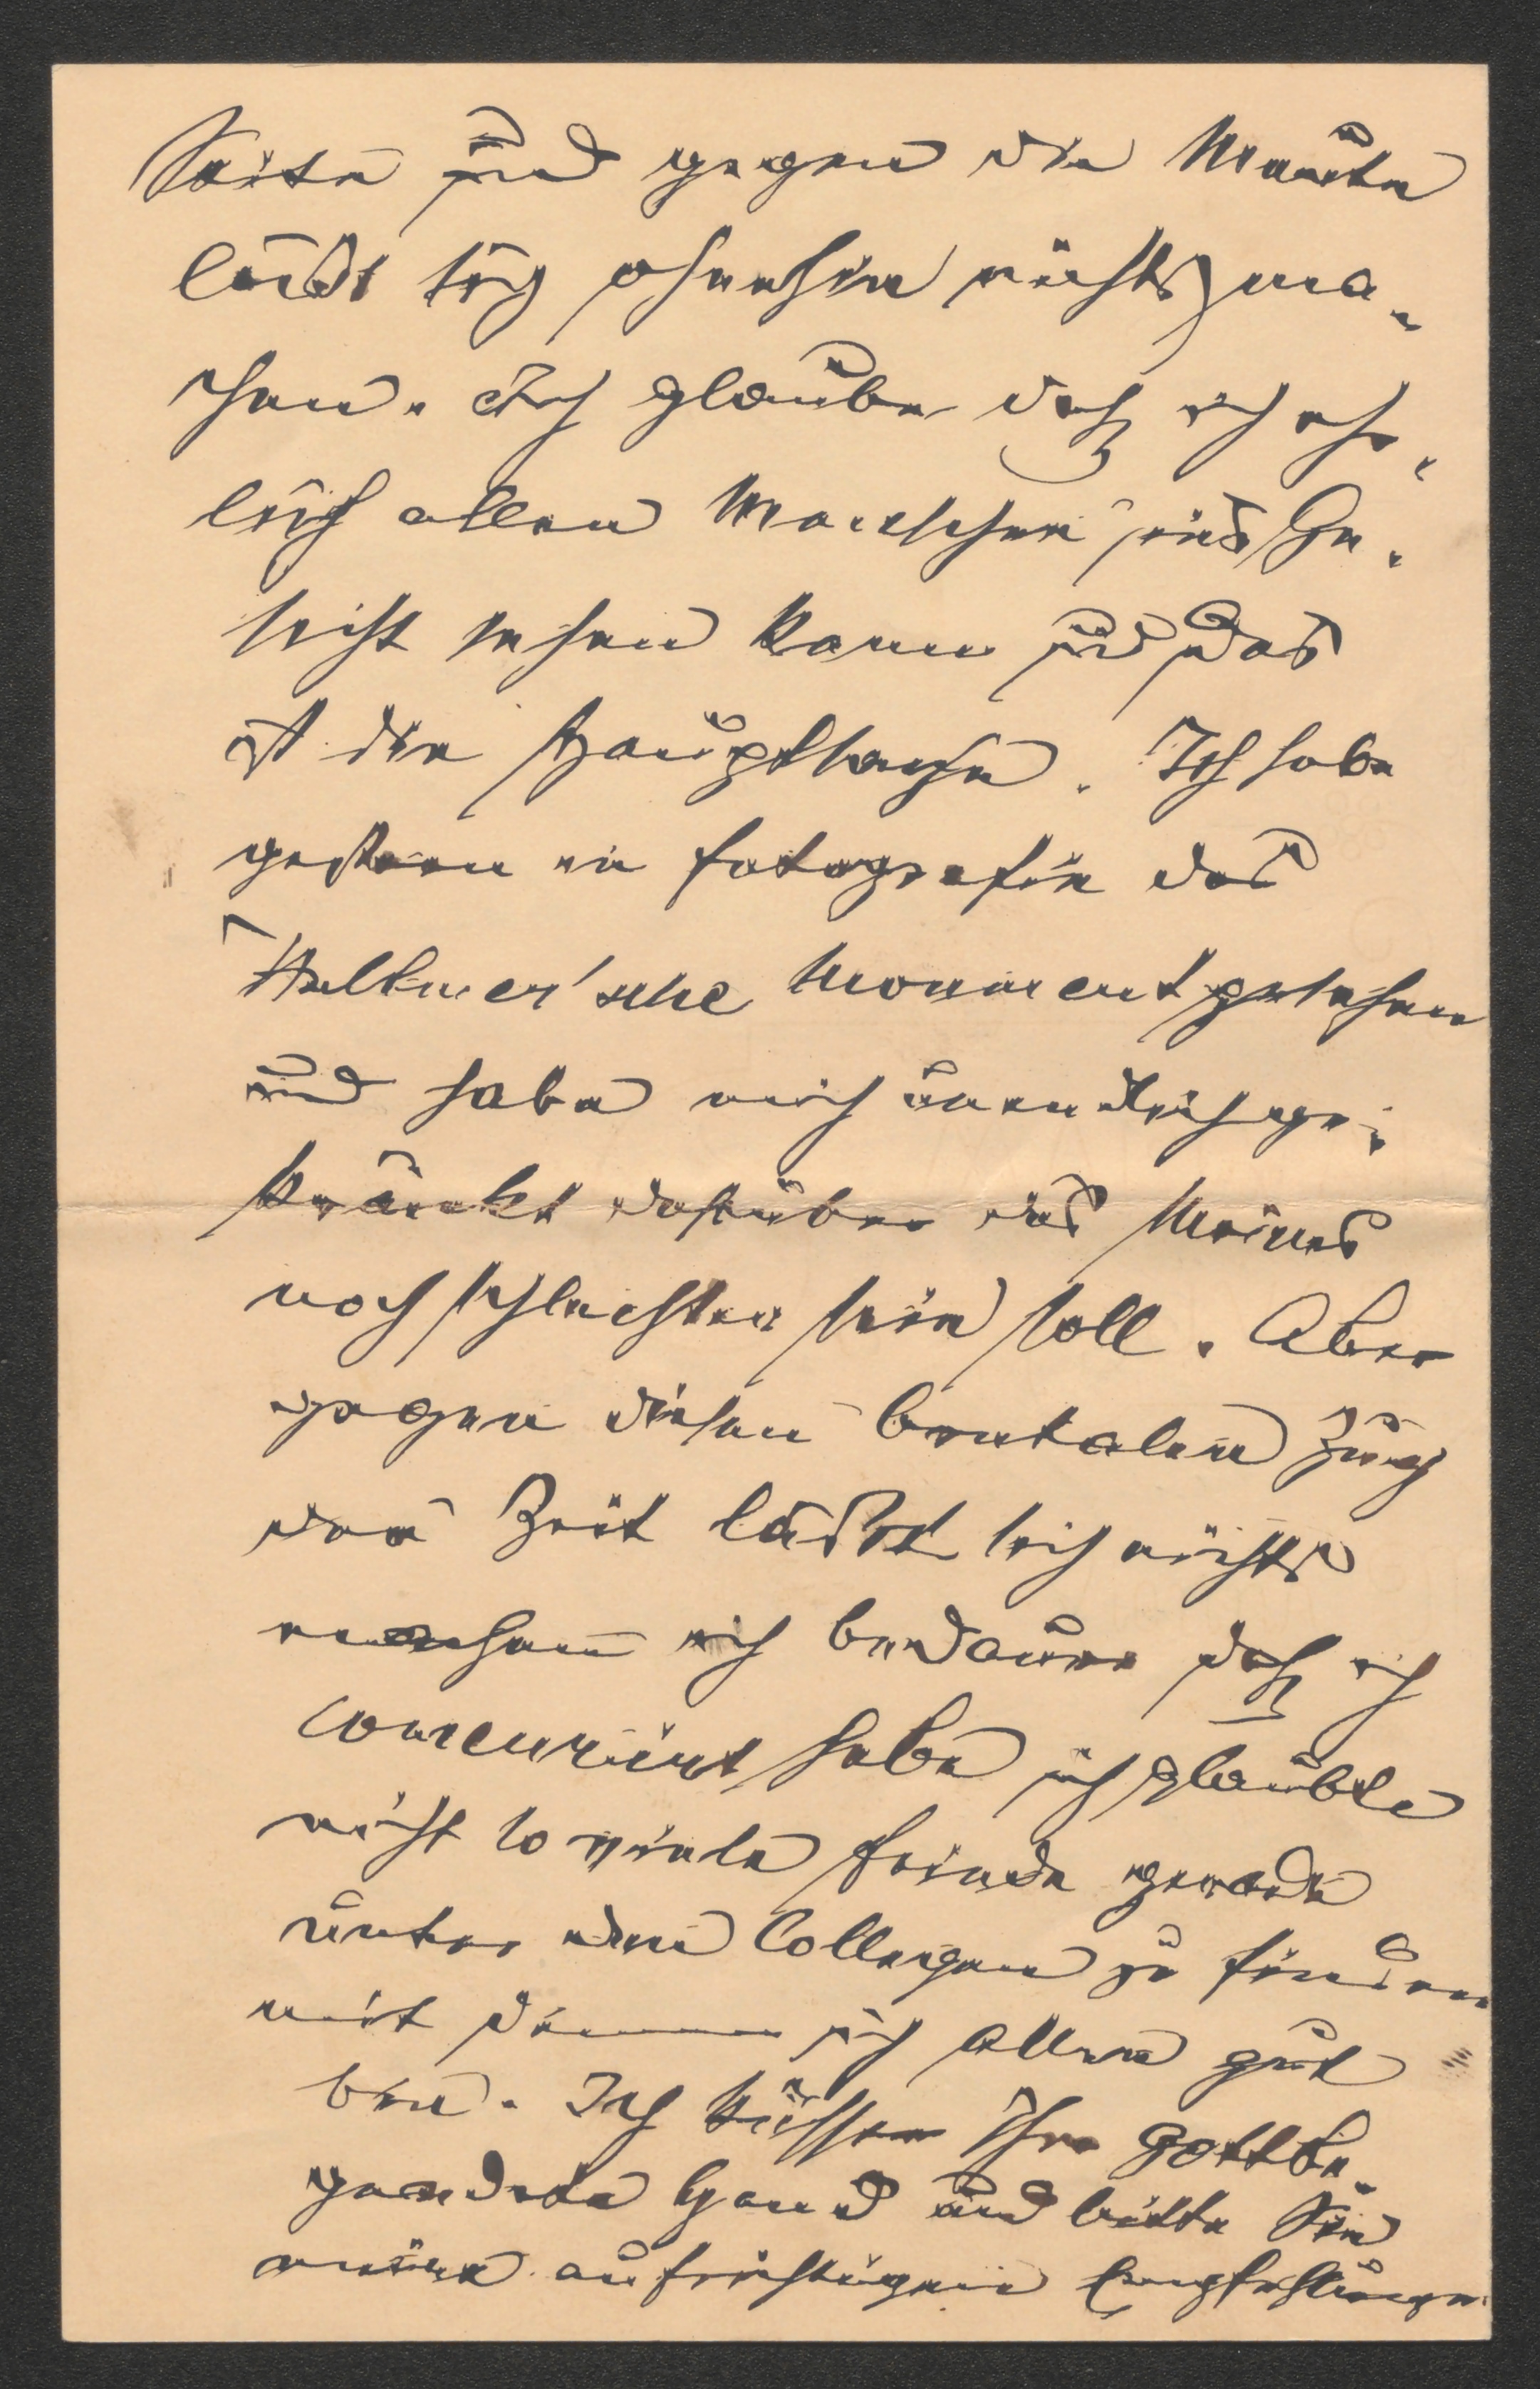 Seite und gegen die Meute
läßt sich ohnehin nichts ma-
chen. Ich glaube daß ich ehr-
lich allen Menschen ins Ge-
sicht sehen kann und das
ist die Hauptsache. Ich habe
gestern in fotografie das
Hellmer'sche Monument gesehen
und habe mich unendlich ge-
kränkt darüber das Meines
noch schlechter sein soll. Aber
gegen diesen brutalen Zug
der Zeit läßt sich nichts
machen ich bedaure daß ich
concurirt habe ich glaubte
nicht so viele feinde gerade
unter den Collegen zu finden
mit denen ich allen gut
bin. Ich küsse Ihre gottbe-
gnadete Hand und bitte Sie
meine aufrichtigen Empfehlungen